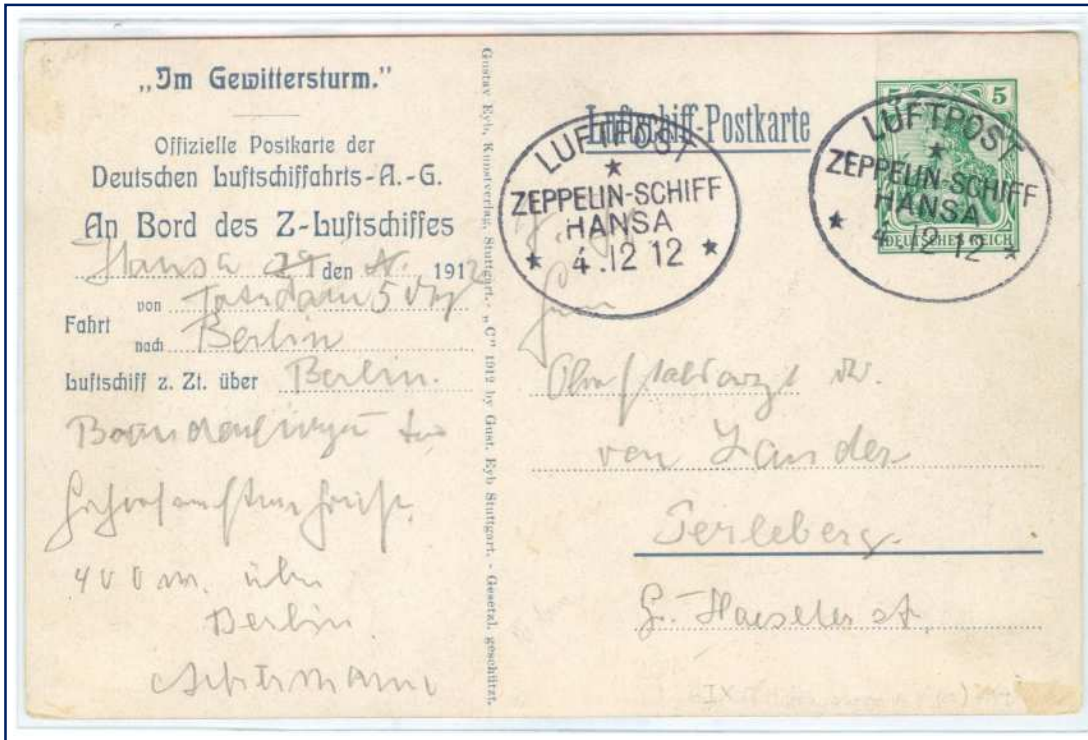 „Im Gewittersturm.“
Offizielle Postkarte der
Deutschen Luftschiffahrts-A.-G.
An Bord des Z-Luftschiffes
Hansa den 1912
Fahrt von Potsdam
nach Berlin
Luftschiff z. Zt. über Berlin.
400 m. über
Berlin.
Gustav Eyb, Kunstverlag, Stuttgart. „C“ 1912 by Gust. Eyb Stuttgart. - Gesetzl. geschützt.
Luftschiff-Postkarte
LUFTPOST
ZEPPELIN-SCHIFF
HANSA
4.12 12
5 5
DEUTSCHES REICH
LUFTPOST
ZEPPELIN-SCHIFF
HANSA
4.12 12
Oberstabsarzt Dr.
von Zander
Perleberg.